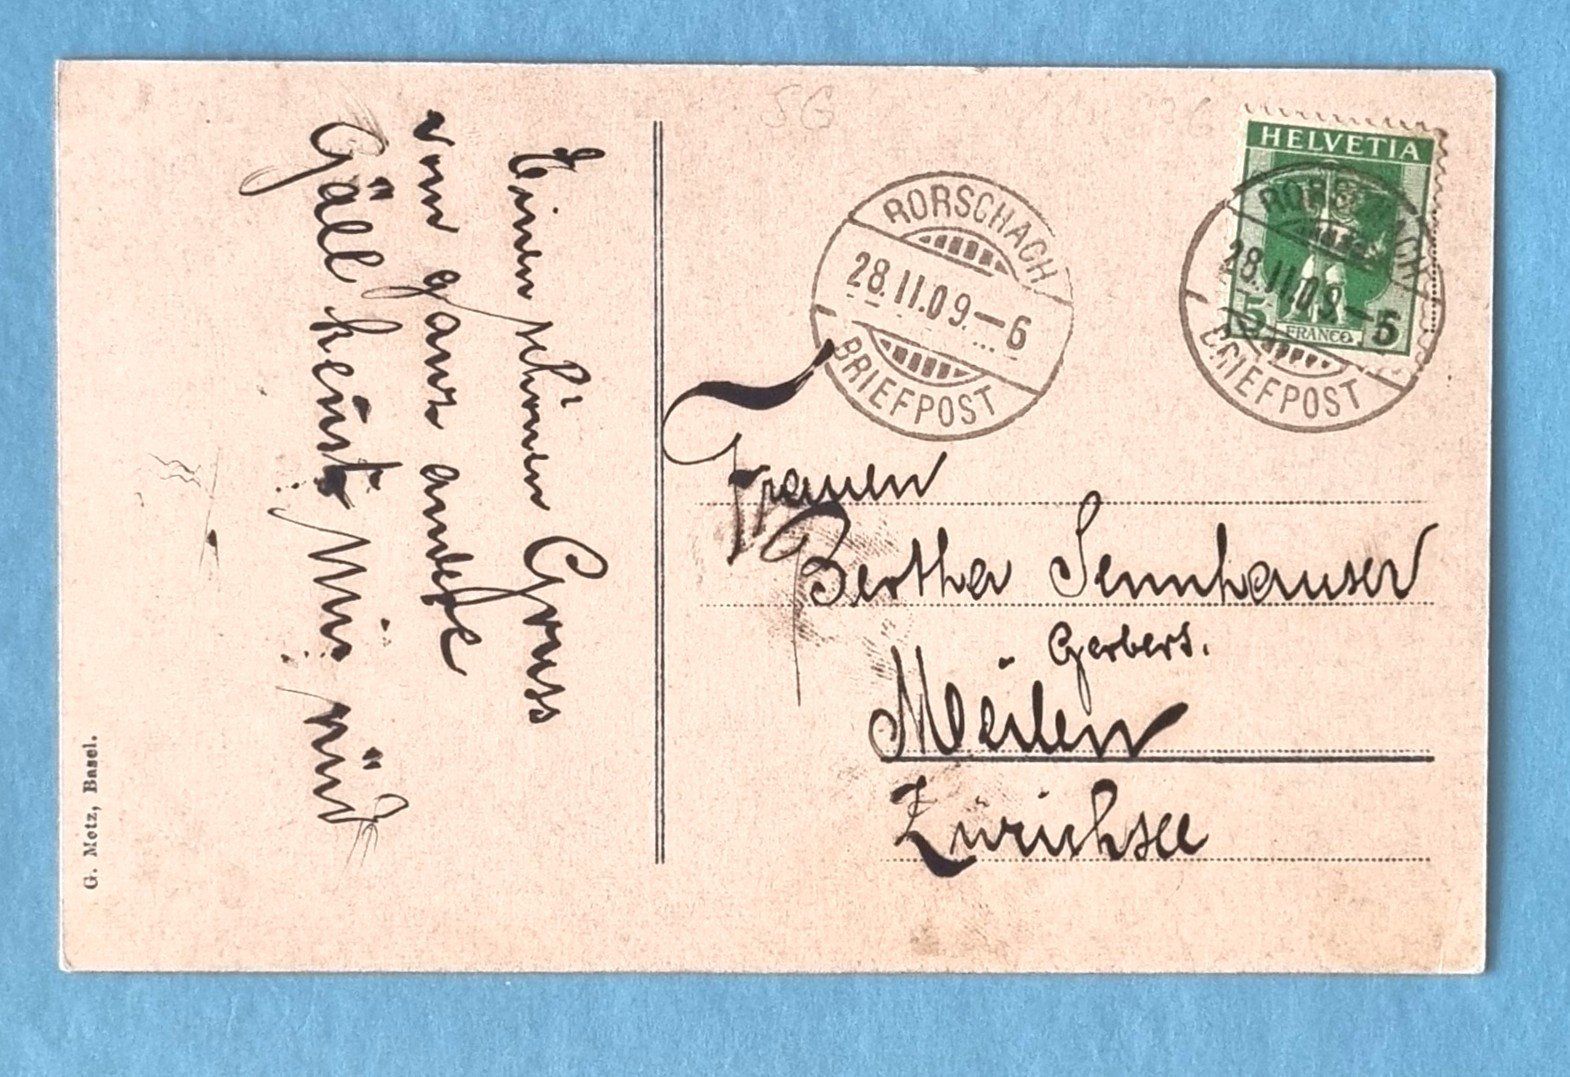 Einen schönen Gruss
von ganz andbe
Gäll kenst Mir nüd
G. Metz, Basel.
SG
HELVETIA
5 FRANCO 5
RORSCHACH
28.II.09.–6
BRIEFPOST
RORSCHACH
28.II.09.–6
BRIEFPOST
Frauen
Bertha Sennhauser
Gerbers.
Meilen
Zürichsee